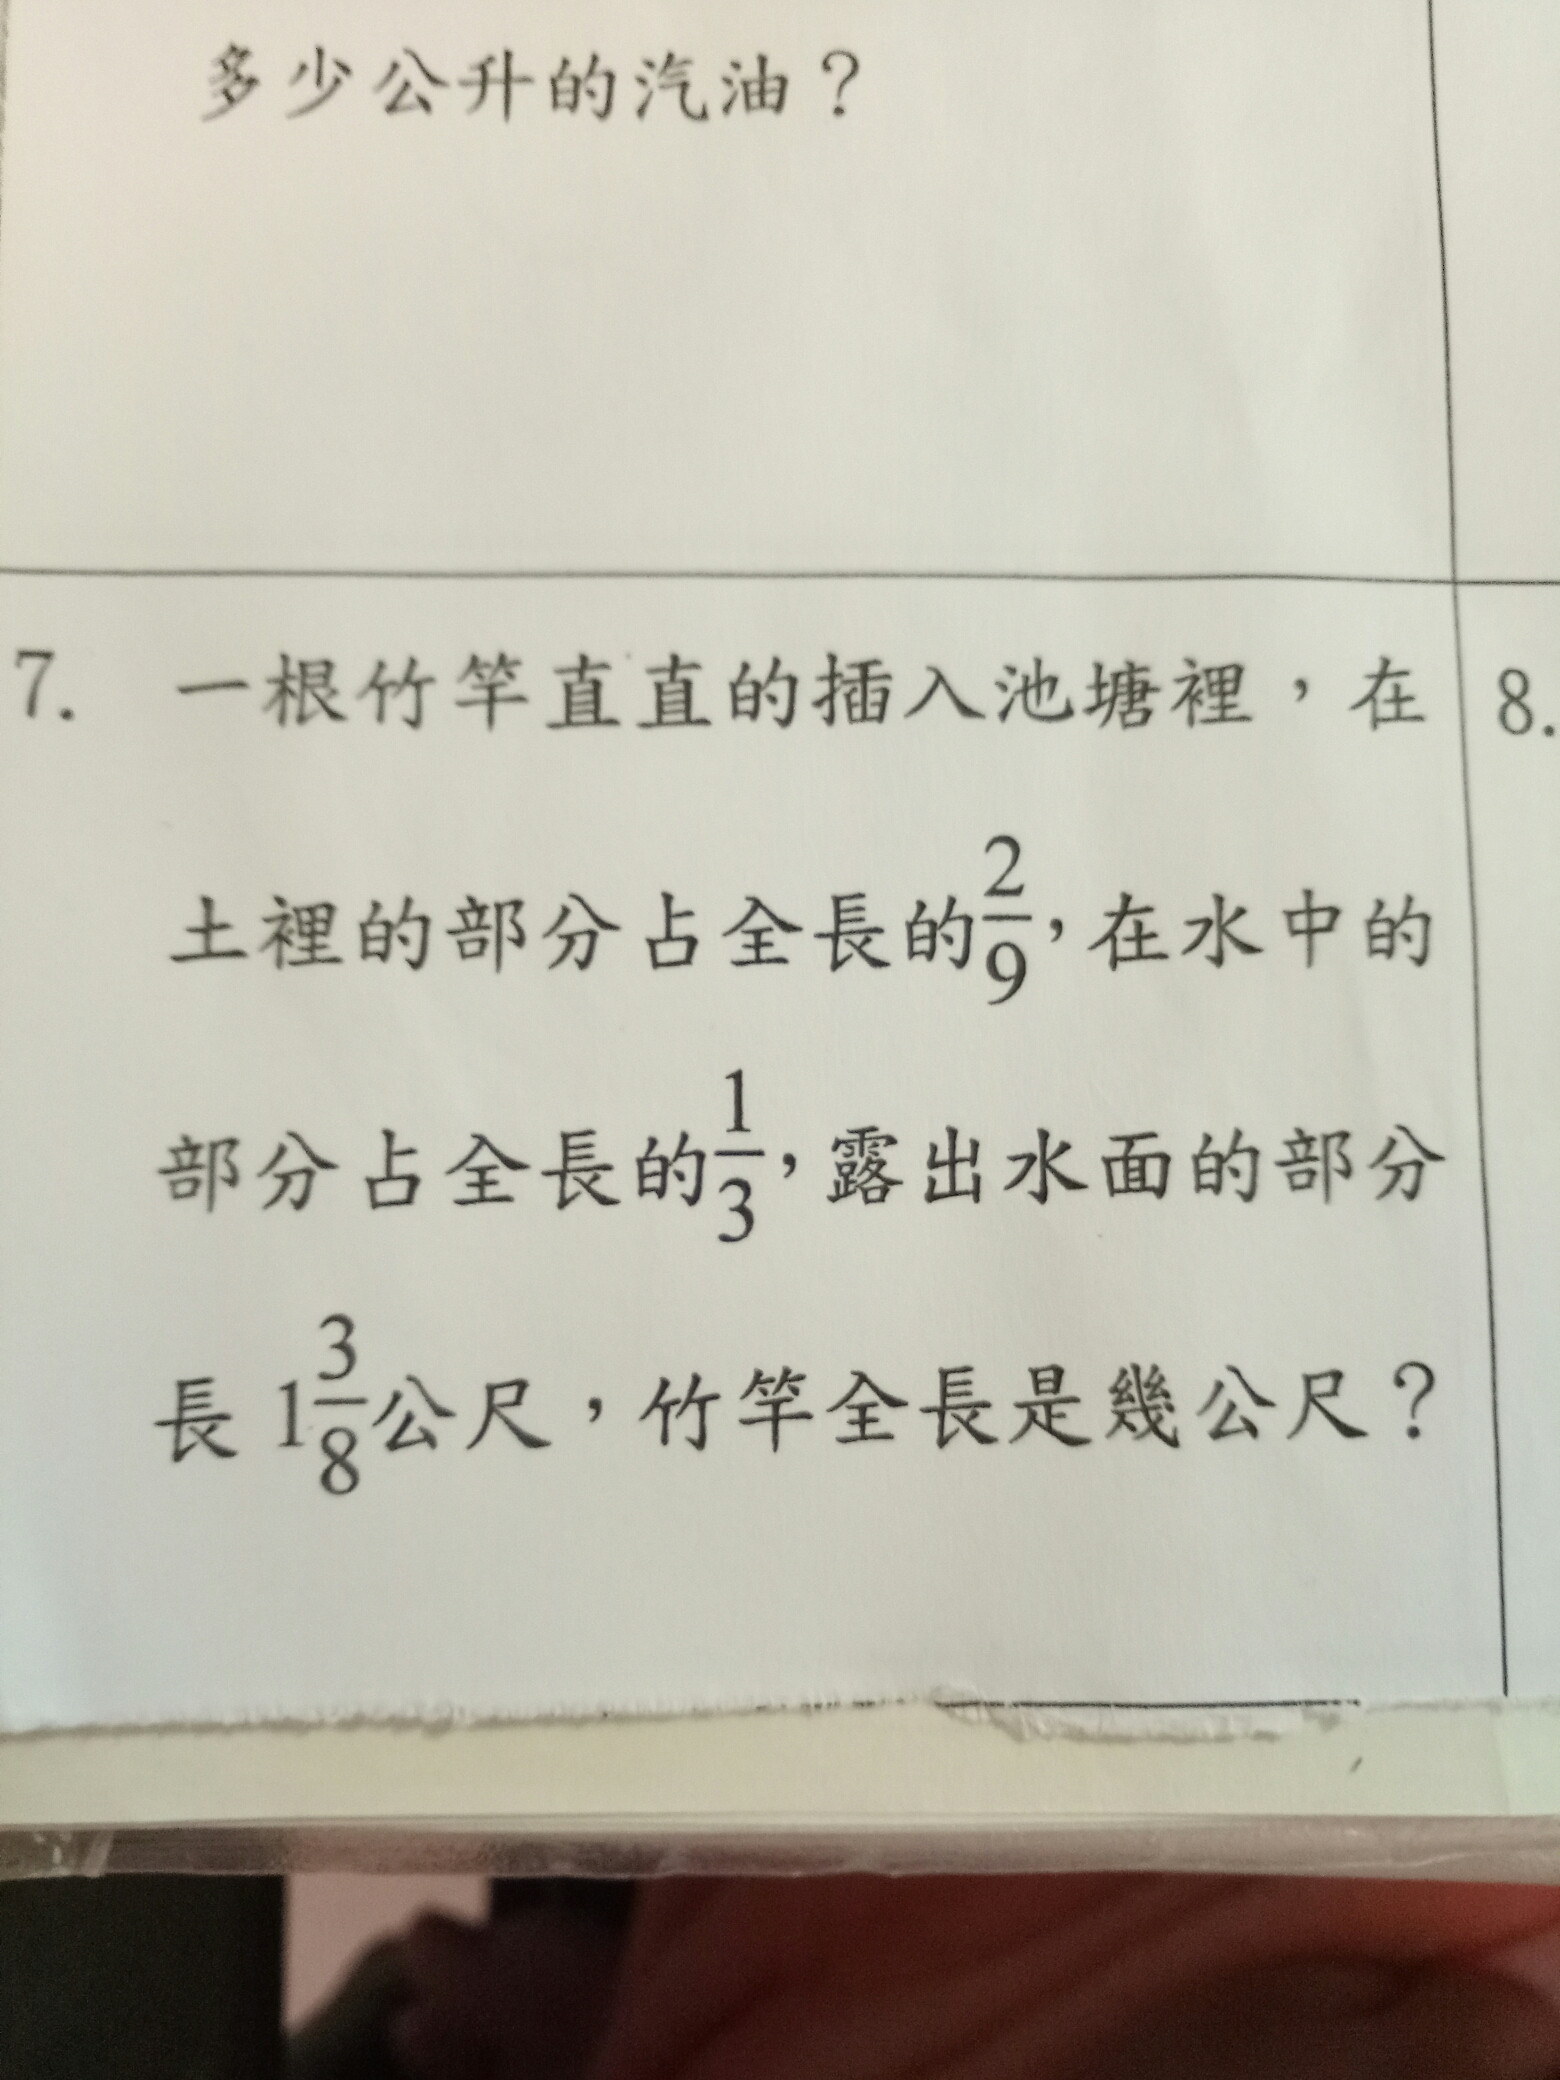 多少公升的汽油？
7. 一根竹竿直直的插入池塘裡，在
土裡的部分占全長的2/9，在水中的
部分占全長的1/3，露出水面的部分
長 1 3/8公尺，竹竿全長是幾公尺？
8.